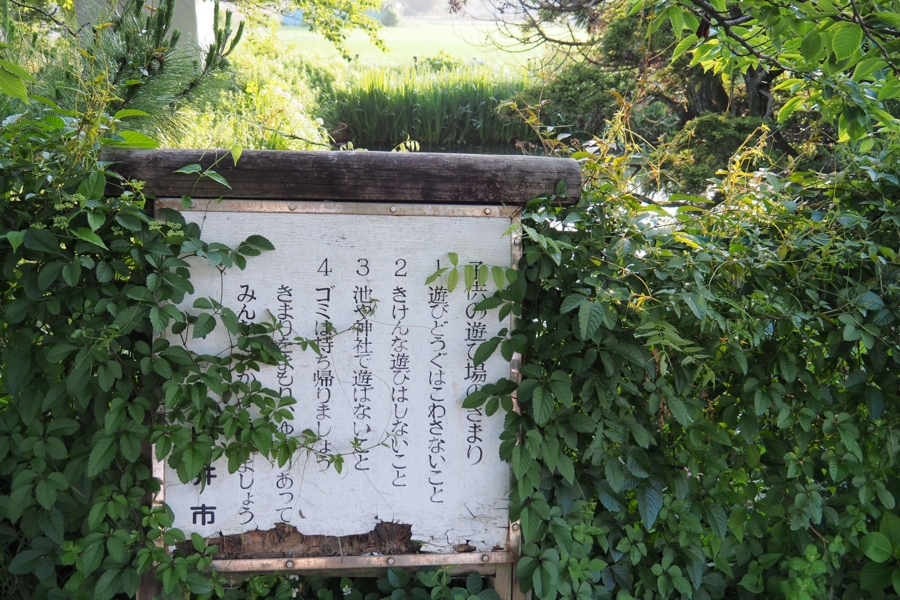 子供の遊び場のきまり
1 遊びどうぐはこわさないこと
2 きけんな遊びはしないこと
3 池や神社で遊ばないこと
4 ゴミは持ち帰りましょう
きまりをまもり ゆ あって
みん ましょう
井市